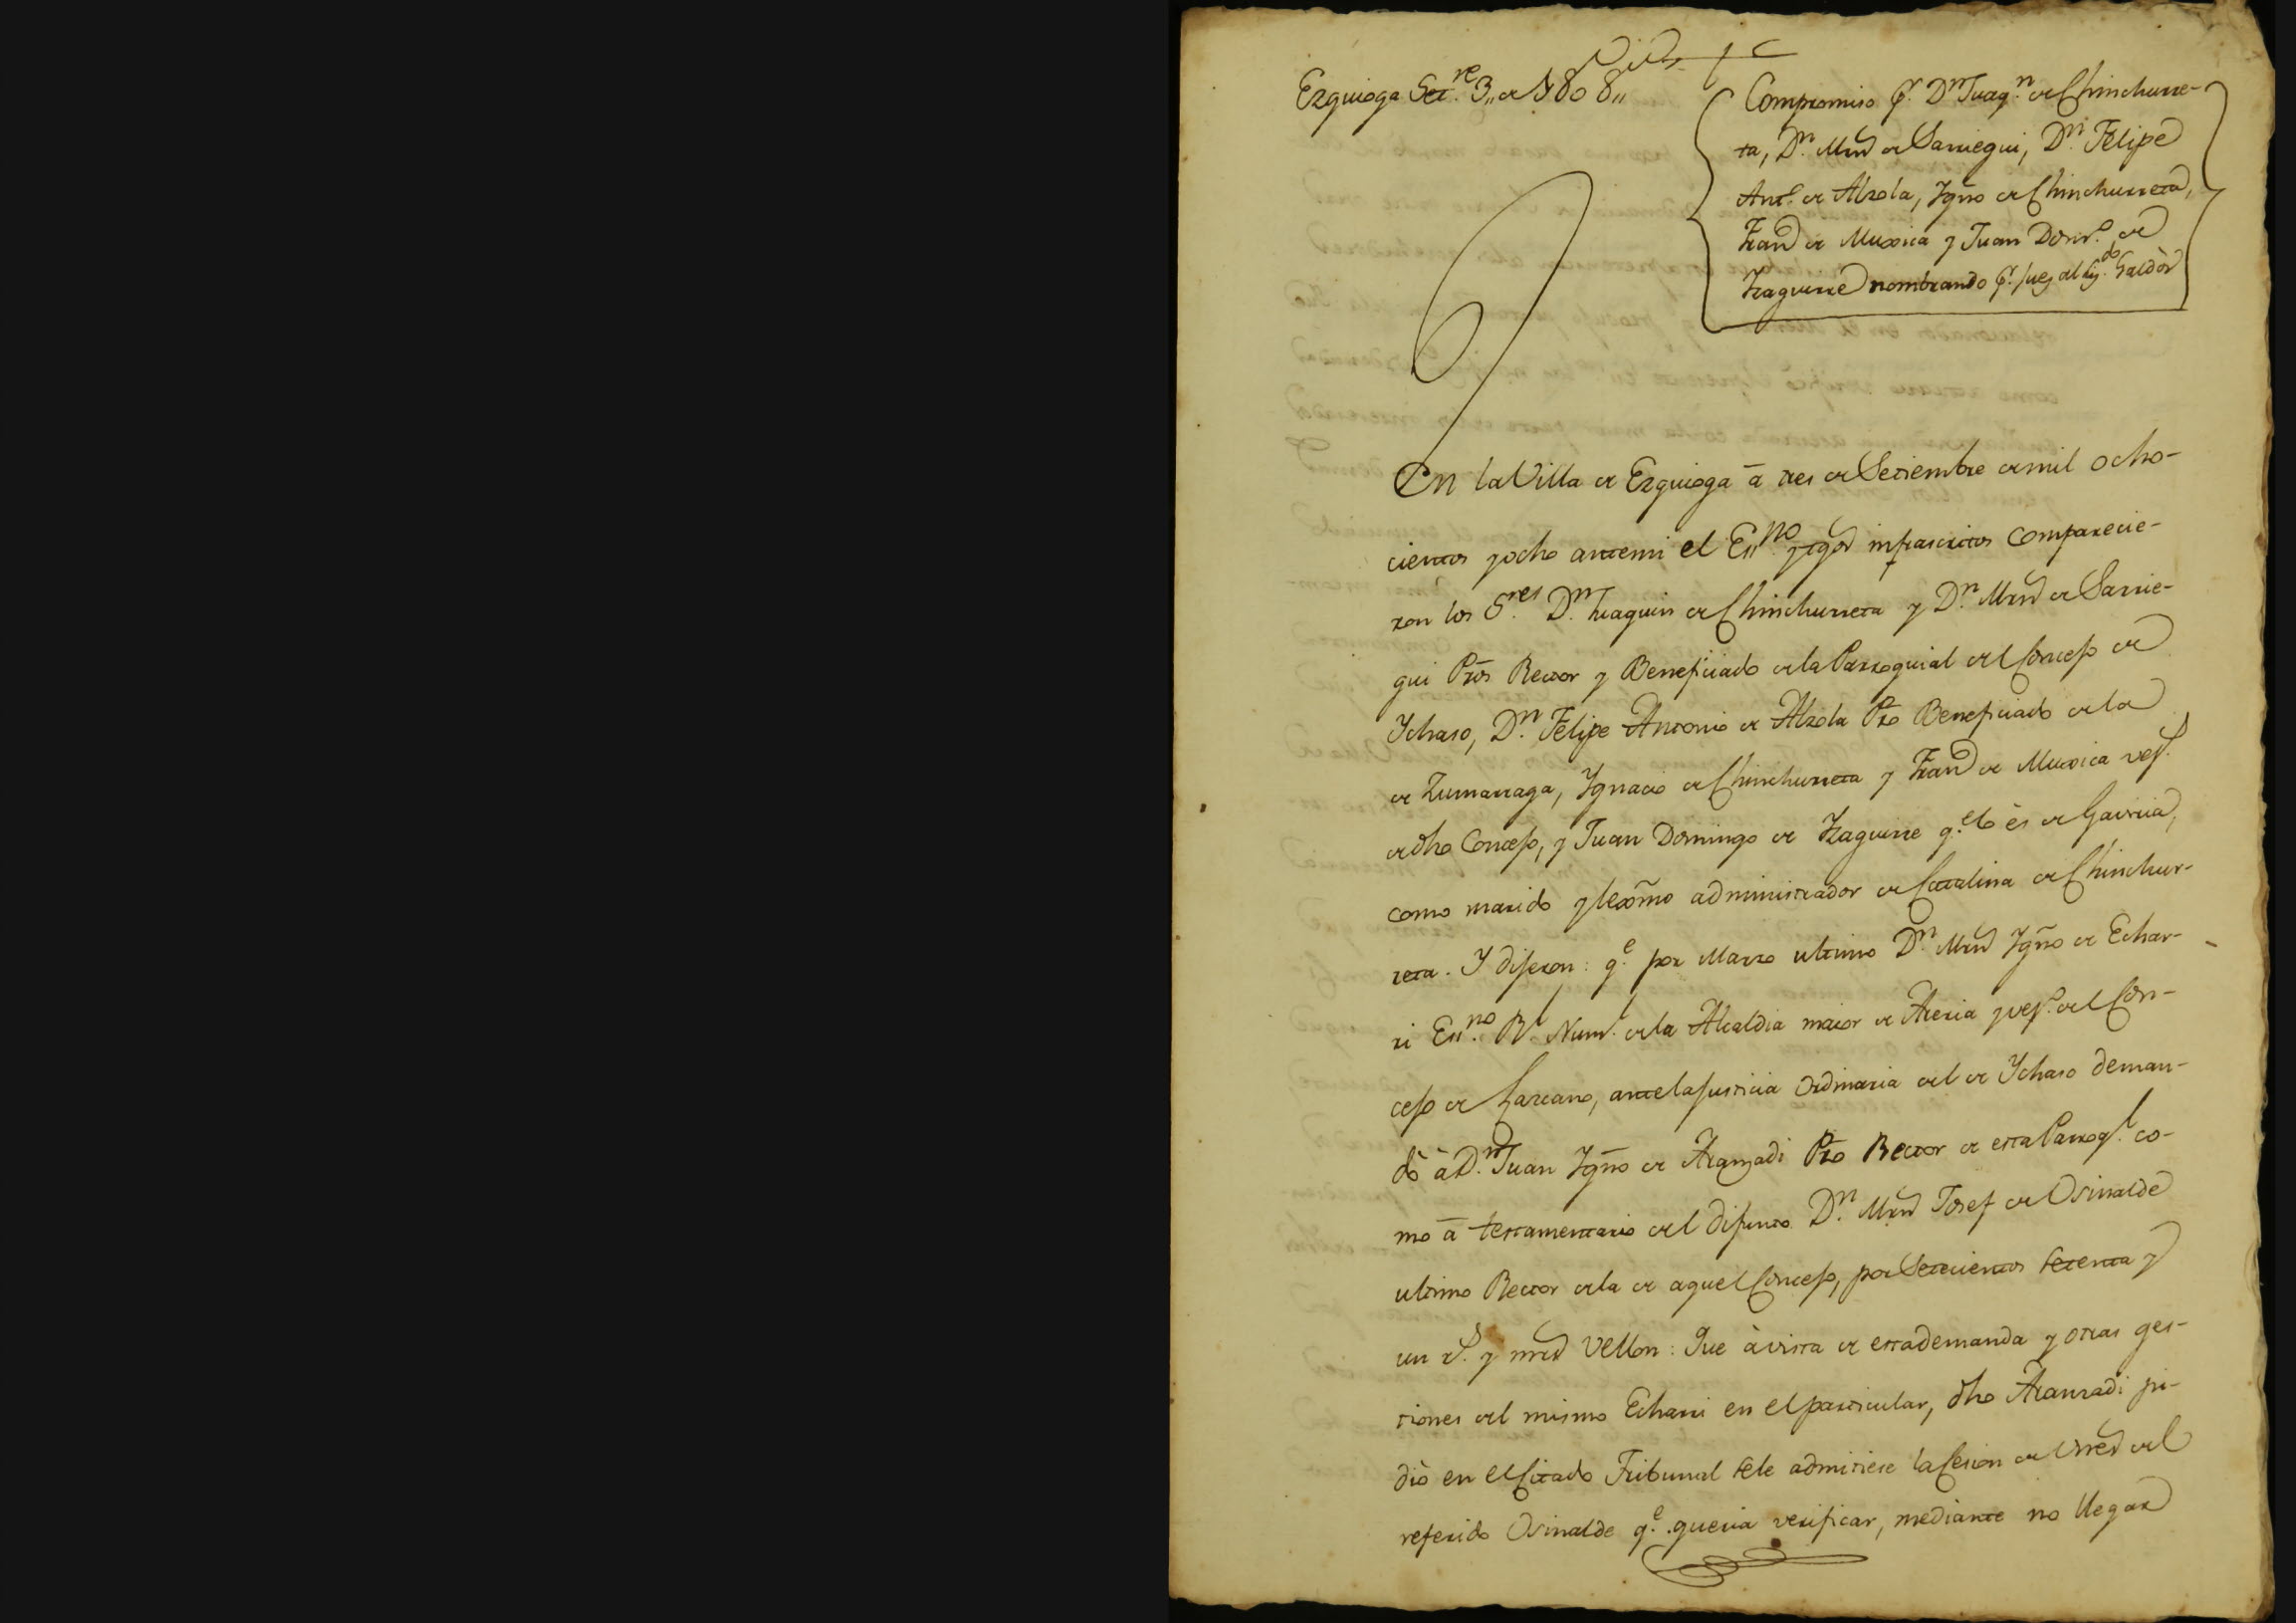 Ezquioga Set.re 3,, de 1808,,
Compromiso pr. Dn Juaqn. de Chinchurre-
ta, Dn. Mrn de Sarriegui, Dn. Felipe
Anto. de Alzola, Ygno de Chinchurreta,
Franco de Muxica y Juan Domo. de
Yzaguirre nombrando pr. juez al Lizdo. Galdos
En la Villa de Ezquioga â tres de Setiembre de mil ocho-
cientos y ocho ante mi el Essno. y tgos infrascritos comparecie-
ron los Sres. Dn. Juaquin de Chinchurreta y Dn. Mrn de Sarrie-
gui Pros Rector y Beneficiado de la Parroquial del Concejo de
Ychaso, Dn. Felipe Antonio de Alzola Pro Beneficiado de la
de Zumarraga, Ygnacio de Chinchurreta y Franco de Muxica vess.
de dho Concejo, y Juan Domingo de Yzaguirre q.e lo ès de Gaviria,
como marido y lexmo administrador de Catalina de Chinchur-
reta. Y dijeron: q.e por Marzo ultimo Dn. Mrn Ygno de Echar-
ri Essno. Rl. Numl. de la Alcaldia maior de Areria y vesº. del Con-
cejo de Lazcano, ante la justicia ordinaria del de Ychaso deman-
dò à Dn. Juan Ygno de Aranzadi Pro Rector de esta Parroql. co-
mo â testamentario del difunto Dn. Mrn Josef de Osinalde
ultimo Rector de la de aquel Concejo, por Setecientos setenta y
un rs. y mrs vellon: Que à vista de esta demanda y otras ges-
tiones del mismo Echarri en el particular, dho Aranzadi pi-
diò en el Citado Tribunal se le admitiese la Cesion de vnes del
referido Osinalde q.e queria verificar, mediante no llegar